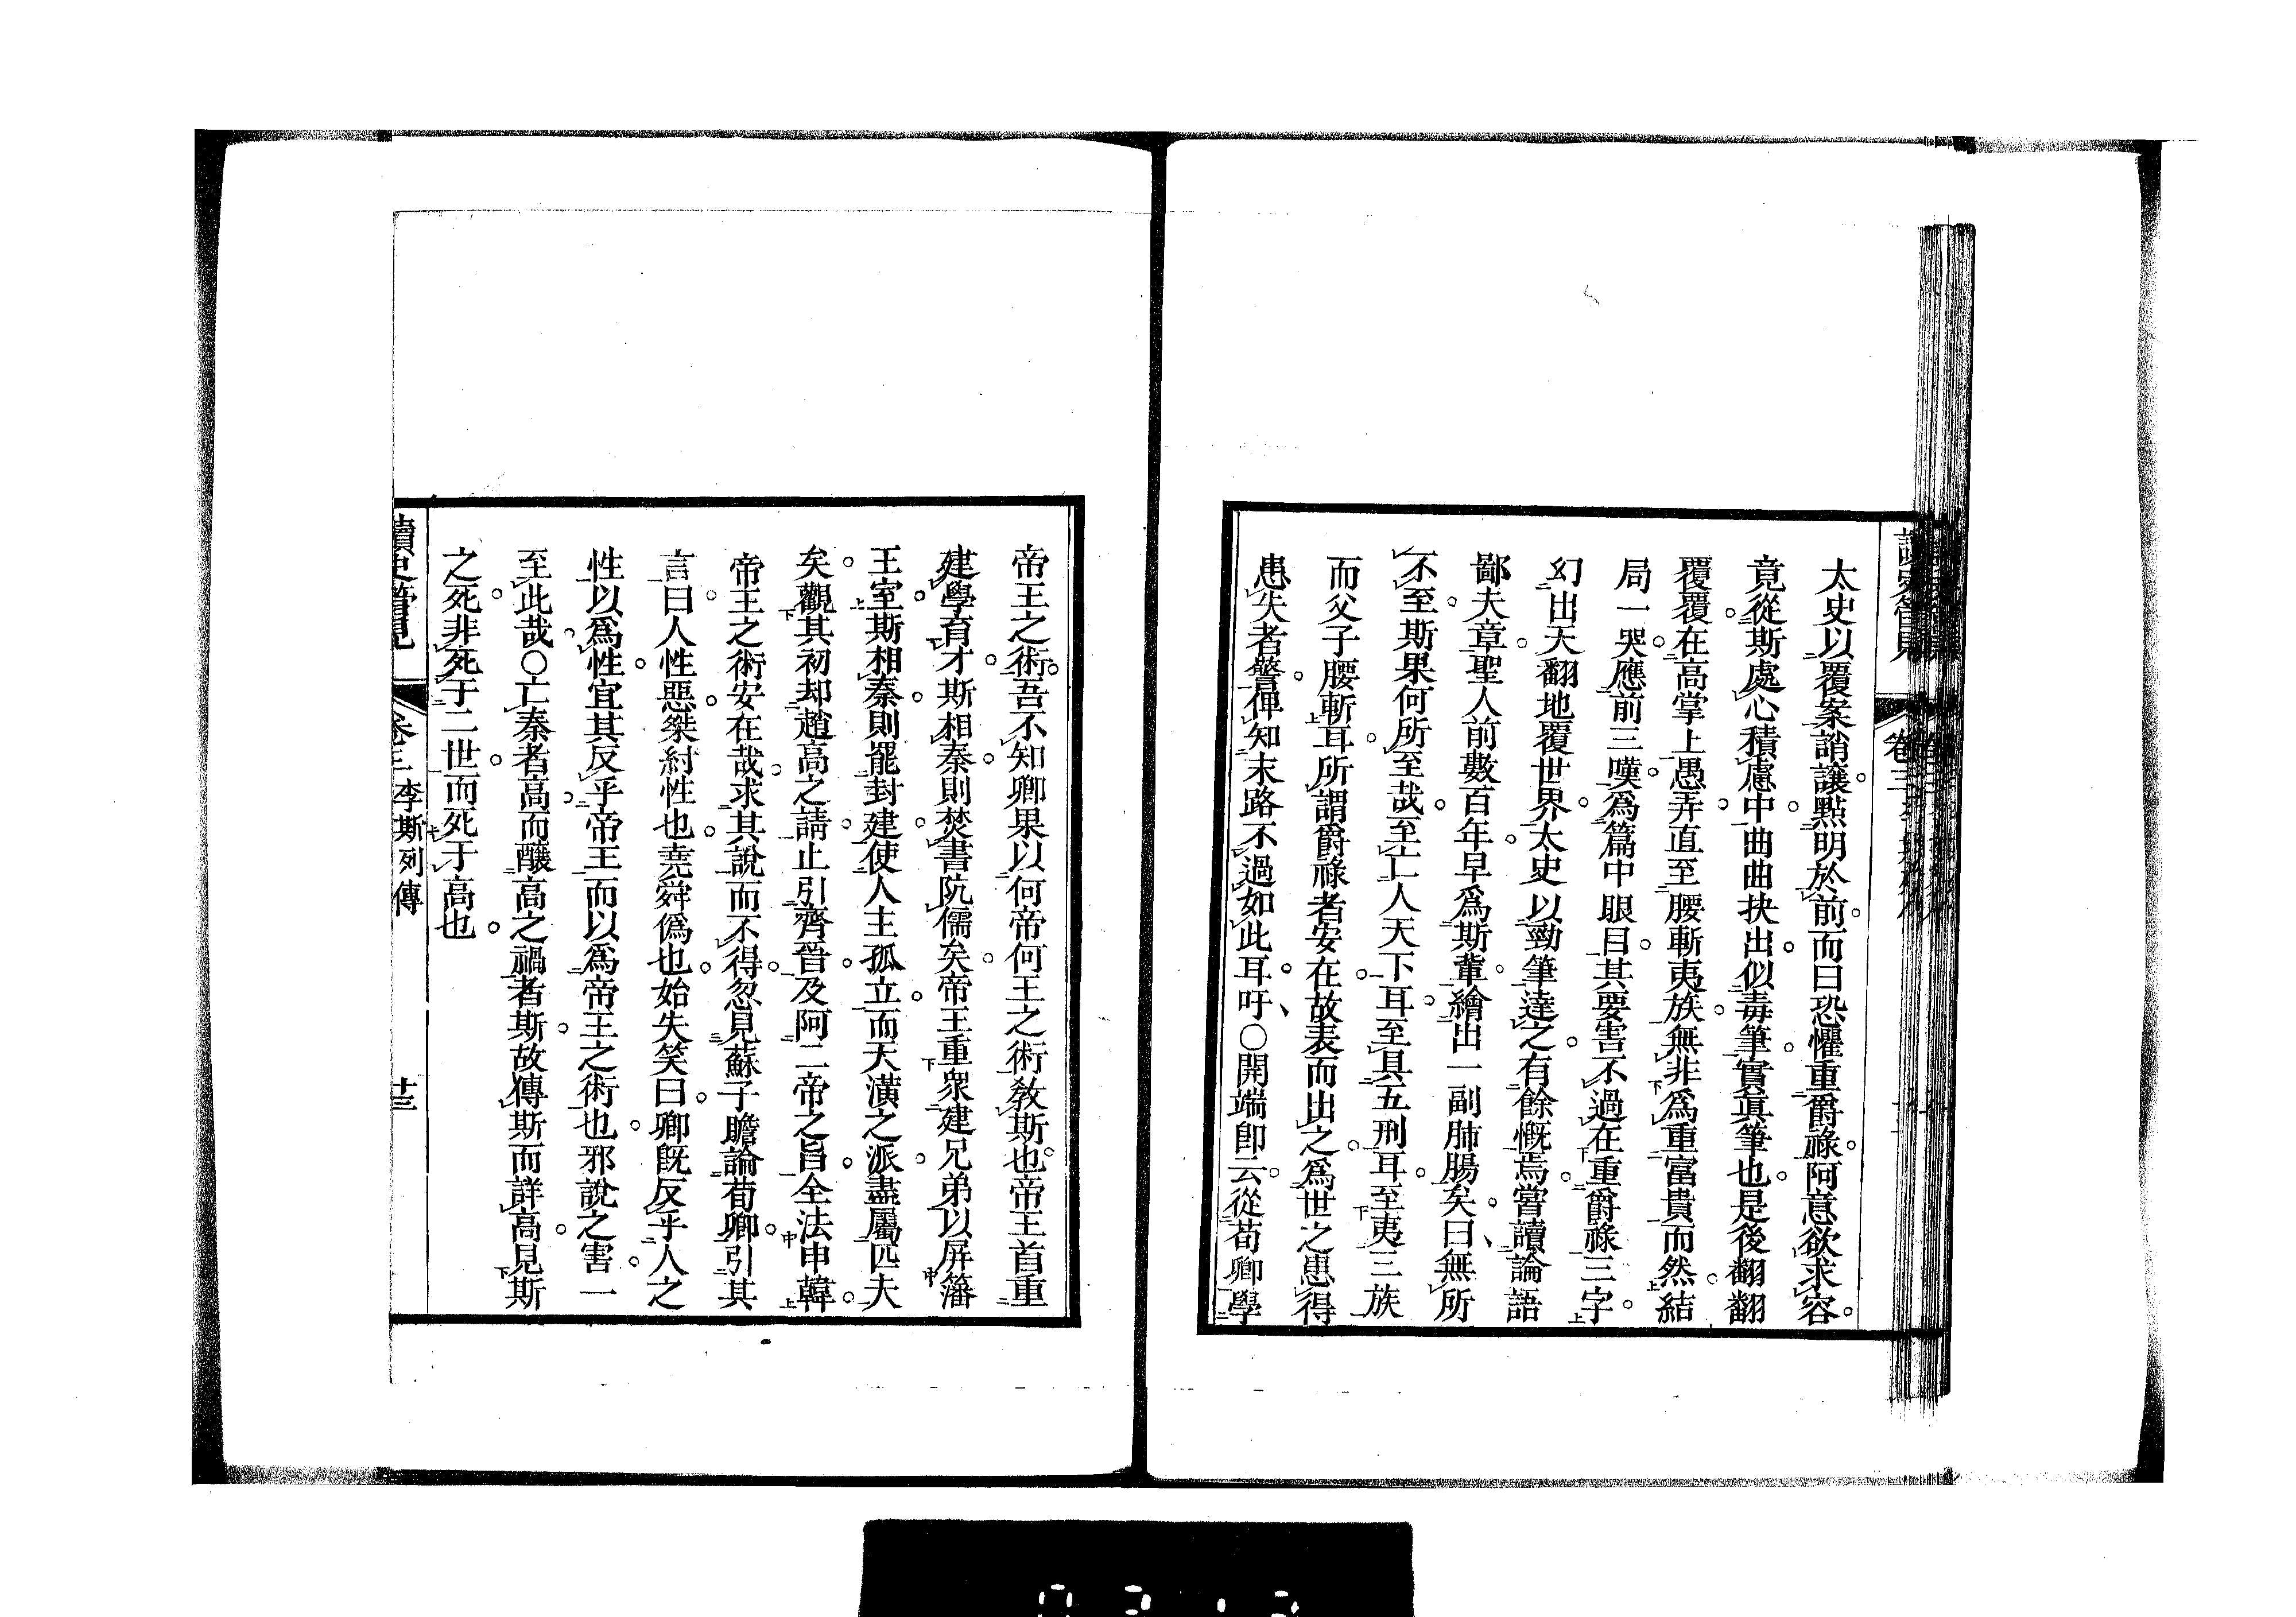 太史以覆案誚讓點明於前而曰恐懼重爵祿阿意欲求容
竟從斯處心積慮中曲曲抉出似毒筆實眞筆也是後翻翻
覆覆在高掌上愚弄直至腰斬夷族無非爲重富貴而然結
局一哭應前三嘆爲篇中眼目其要害不過在重爵祿三字
幻出天翻地覆世界太史以勁筆達之有餘慨焉嘗讀論語
鄙夫章聖人前數百年早爲斯輩繪出一副肺腸矣曰無所
不至斯果何所至哉至亡人天下耳至具五刑耳至夷三族
而父子腰斬耳所謂爵祿者安在故表而出之爲世之患得
患失者警俾知末路不過如此耳吁〇開端卽云從荀卿學
帝王之術吾不知卿果以何帝何王之術敎斯也帝王首重
建學育才斯相秦則焚書阬儒矣帝王重衆建兄弟以屏籓
王室斯相秦則罷封建使人主孤立而天潢之派盡屬匹夫
矣觀其初却趙高之請止引齊晉及阿二帝之旨全法申韓
帝王之術安在哉求其說而不得忽見蘇子瞻論荀卿引其
言曰人性惡桀紂性也堯舜僞也始失笑曰卿旣反乎人之
性以爲性宜其反乎帝王而以爲帝王之術也邪說之害一
至此哉〇亡秦者高而釀高之禍者斯故傳斯而詳高見斯
之死非死于二世而死于高也
讀史管見 卷三 李斯列傳 廿三